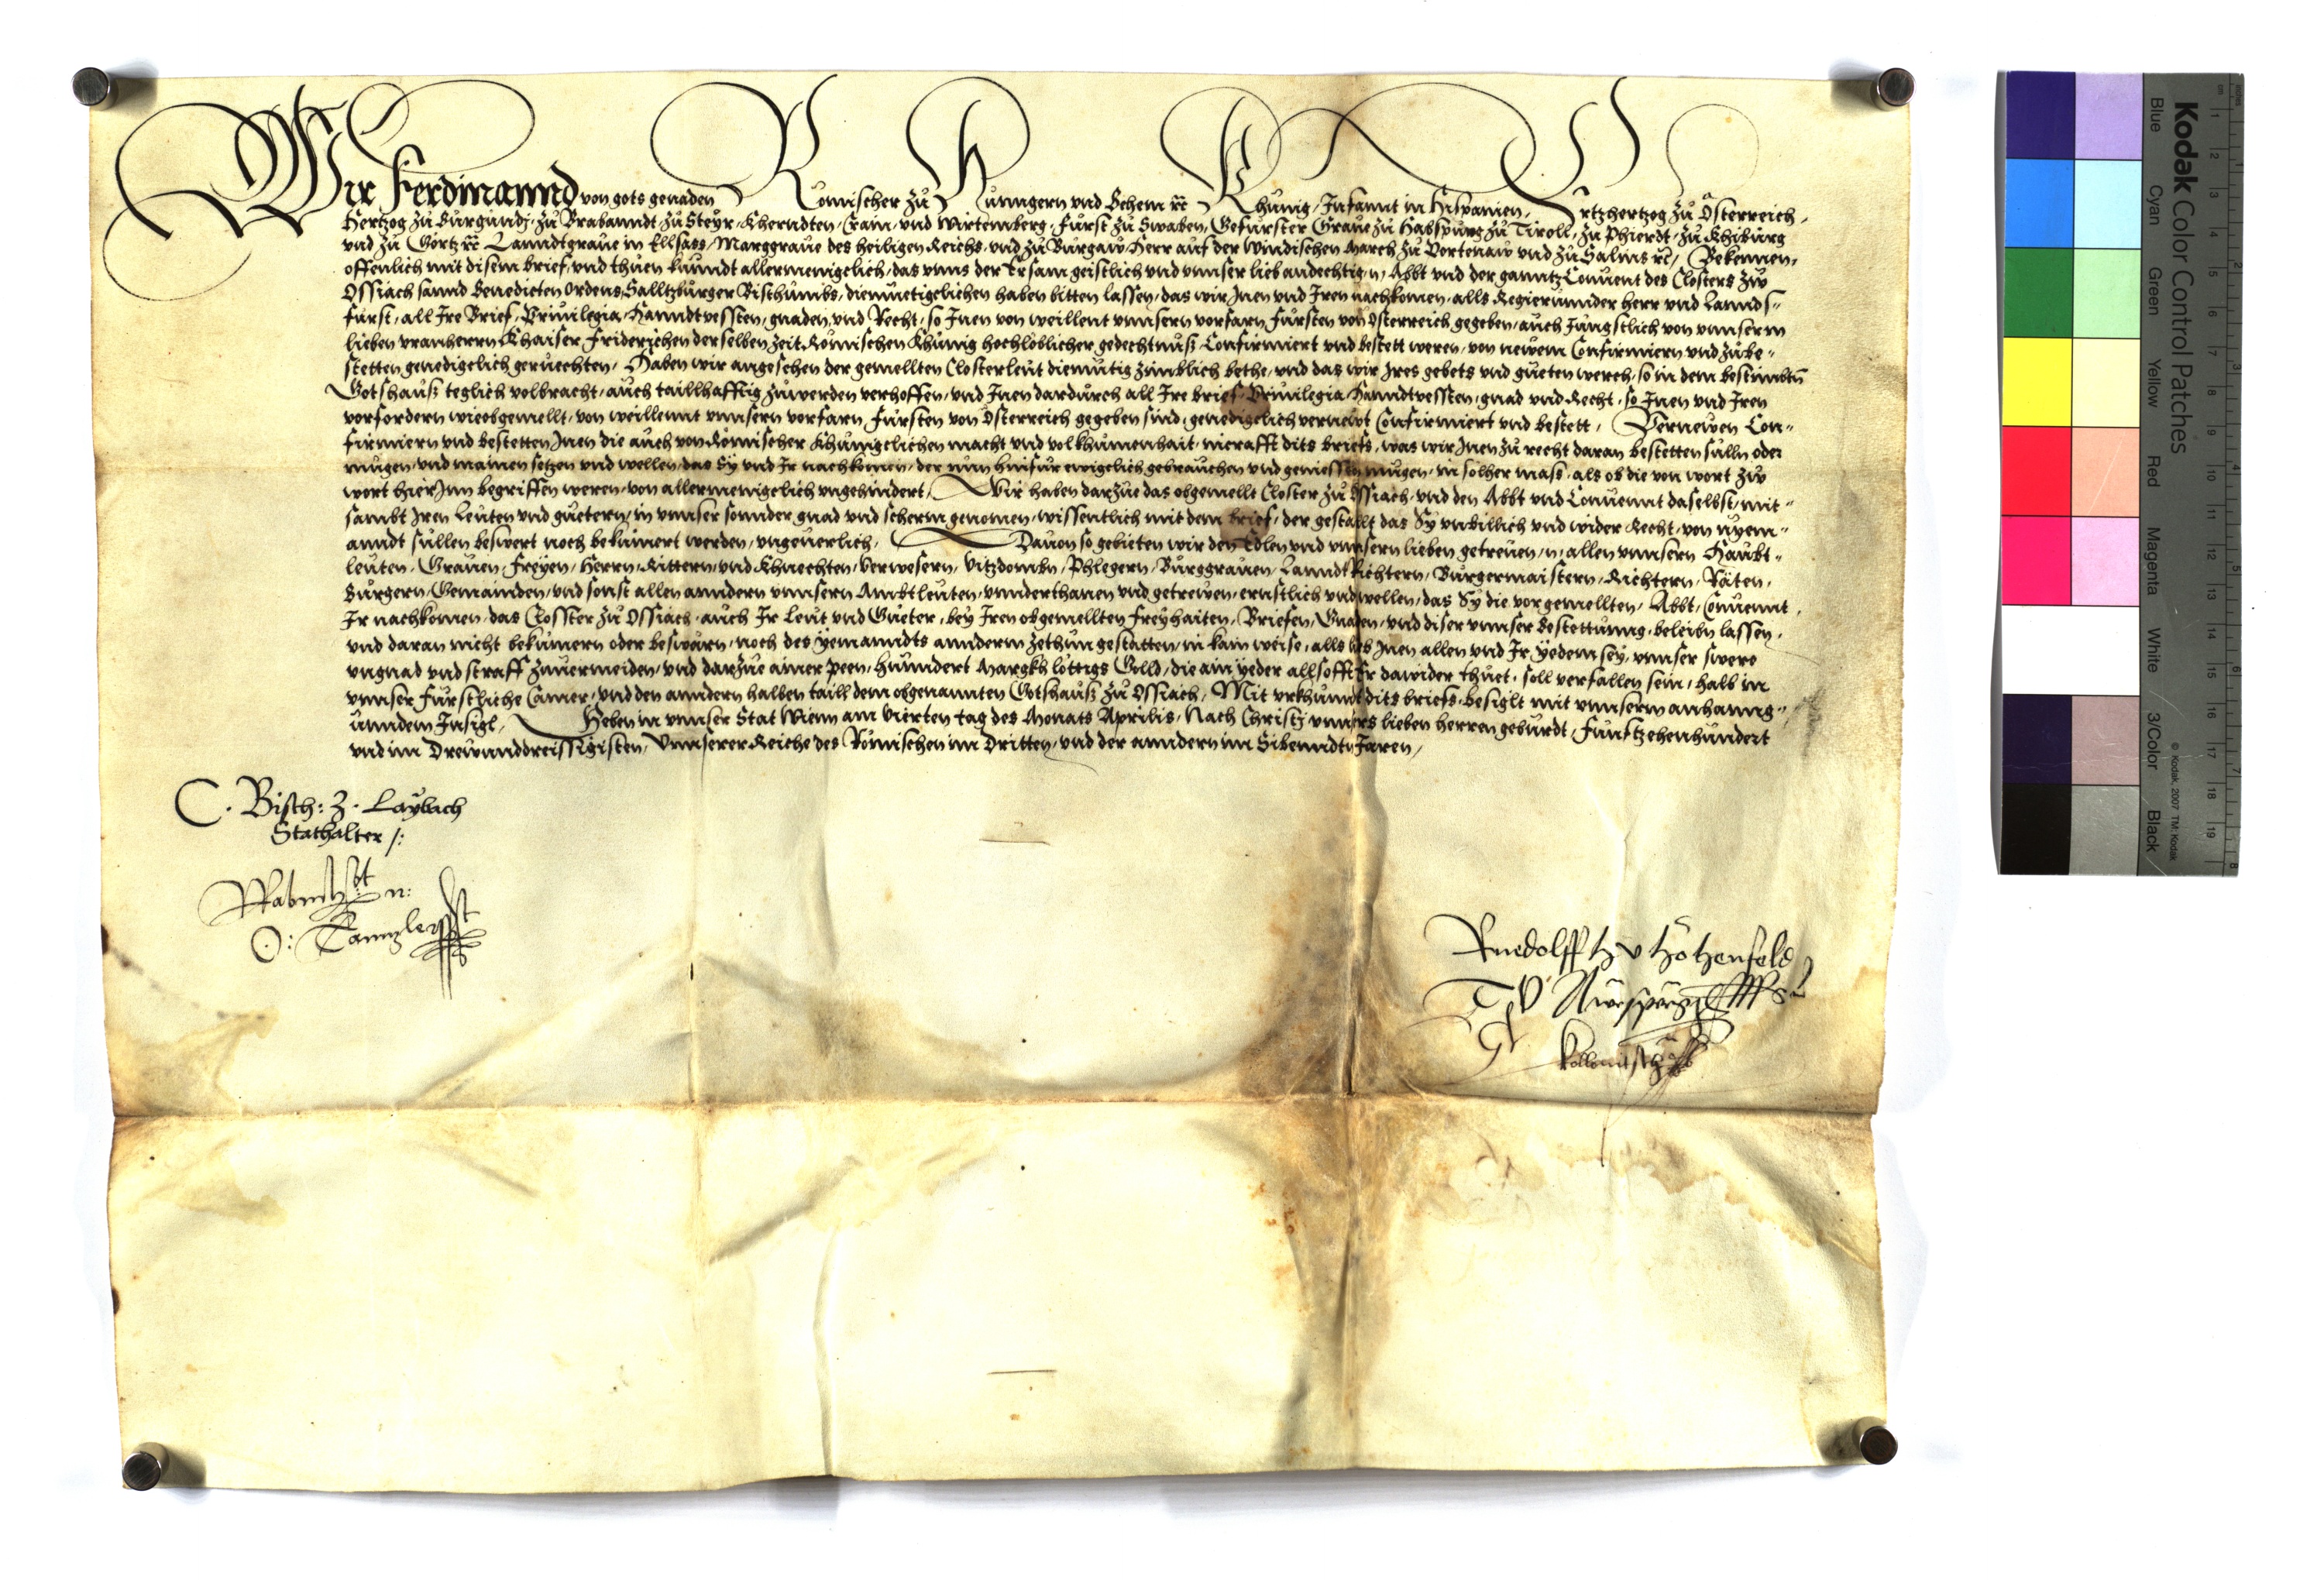 Wir Ferdinannd von gots genaden Römischer zů Hungern vnd Behem ꝛc̃ Khünig, Infannt in Hispanien, Ertzhertzog zů Österreich,
Hertzog zů Burgundj, zů Brabanndt, zů Steyr, Kherndten, Crain, vnd Wirtemberg, Fürst zů Swaben, Gefürster Graue zů Habspurg zů Tiroll, zů Phierdt, zů Khiburg
vnd zů Görtz ꝛc̃ Lanndtgraue in Ellsass, Marggraue des heiligen Reichs, vnd zů Burgaw, Herr auf der Windischen March zů Portenaw vnd zů Salins ꝛc̃, Bekennen,
offenlich mit disem brief, vnd thuen kunndt allermenigclich, das vnns der Ersam geistlich vnd vnnser lieb andechtig, n, Abbt vnd der ganntz Conuent des Closters zw
Ossiach sannd Benedicten Ordens, Salltzburger Bischumbs, diemuetigclichen haben bitten lassen, das wir Inen vnd Iren nachkomen, alls Regierunnder herr vnd Lannds-
fürst, all Ire Brief, Priuilegia, Hanndtvessten, gnaden vnd Recht, so Inen von weillent vnnsern vorfarn Fürsten von Osterreich gegeben, auch Jungstlich von vnnserm
lieben vranherrn Khaiser Friderichen derselben zeit Römischen Khünig hochloblicher gedechtnuß Confirmiert vnd bestett weren, von newem Confirmiern vnd zube-
stetten genedigclich geruechten, Haben wir angesehen der gemellten Closterleut diemutig zimblich bethe, vnd das wir Ires gebets vnd gueten werch, so in dem bestimbtn
Gotshauß teglich volbracht, auch taillhafftig zuwerden verhoffen, vnd Inen dardurch all Ire brief, Priuilegia, Hanndtvessten, gnad vnd Recht, so Inen vnd Iren
vorfordern wieobgemellt, von weillennt vnnsern vorfarn, Fürsten von Österreich gegeben sind, genedigclich vernewt Confirmiert vnd bestett, Vernewen Con-
firmiern vnd bestetten Inen die auch von Römischer Khunigclichen macht vnd volkhumenhait, incrafft dits briefs, was wir Inen zu recht daran bestetten sulln oder
mugen, vnd mainen setzen vnd wellen, das Sy vnd Ir nachkomen, der nun hinfur ewigclich gebrauchen vnd geniessen mugen, in solher mass, als ob die von wort zw
wort hierInn begriffen weren, von allermenigclich vngehindert, Wir haben darzue das obgemellt Closter zu Ossiach, vnd den Abbt vnd Conuennt daselbst, mit-
sambt Iren leuten vnd guetern, in vnnser sonnder gnad vnd scherm genomen, wissentlich mit dem brief, der gestallt das Sy vnbillich vnd wider Recht, von nyem-
anndt sullen beswert noch bekumert werden, vngeuerlich, Dauon so gebieten wir den Edlen vnd vnnsern lieben getreuen, n, allen vnnsern Haubt-
leuten, Grauen, Freyen, Herrn, Rittern, vnd Khnechten, Verwesern, Vitzdombn, Phlegern, Burggrauen, Lanndt Richtern, Burgermaistern, Richtern, Räten,
Burgern, Gemainden, vnd sonst allen anndern vnnsern Ambtleuten, vnnderthanen vnd getrewen, ernstlich vnd wellen, das Sy die vorgemellten, Abbt, Conuennt,
Ir nachkomen, das Closster zu Ossiach, auch Ir Leut vnd Gueter, bey Iren obgemellten Freyhaiten, Briefen, Gnaden, vnd diser vnnser bestettunng, beleibn lassen,
vnd daran nicht bekumern oder beswärn, noch des yemanndts anndern zethun gestatten, in kain weise, alls lieb Inen allen vnd Ir Yedem sey, vnnser swere
vngnad vnd straff zuuermeiden, vnd darzue ainer peen, hunndert Margkh löttigs Golld, die ain yeder allsofft Er dawider thuet, soll verfallen sein, halb in
vnnser Fürstliche Camer, vnd den anndern halben taill dem obgenannten Gotshauß zu Ossiach, Mit vrkhunnt dits briefs, besiglt mit vnnserm anhanng-
unndem Insigl, Geben in vnnser Stat Wienn am Vierten tag des Monats Aprilis, Nach Christj vnnsers lieben herren geburdt, Funfftzehenhundert
vnd im Drewunddreissigisten, Vnnserer Reiche des Römischen im Dritten, vnd der anndern im Sibenndtn Jaren,
C. Bisch: z. Laybach
Stathalter /:
O: Canntzler
Ruedolff h v hohenfeld
T V Aursperg
Kodak Color Control Patches
Blue Cyan Green Yellow Red Magenta White 3/Color Black
© Kodak, 2007 TM: Kodak
cm 1 2 3 4 5 6 7 8 9 10 11 12 13 14 15 16 17 18 19
inches 1 2 3 4 5 6 7 8